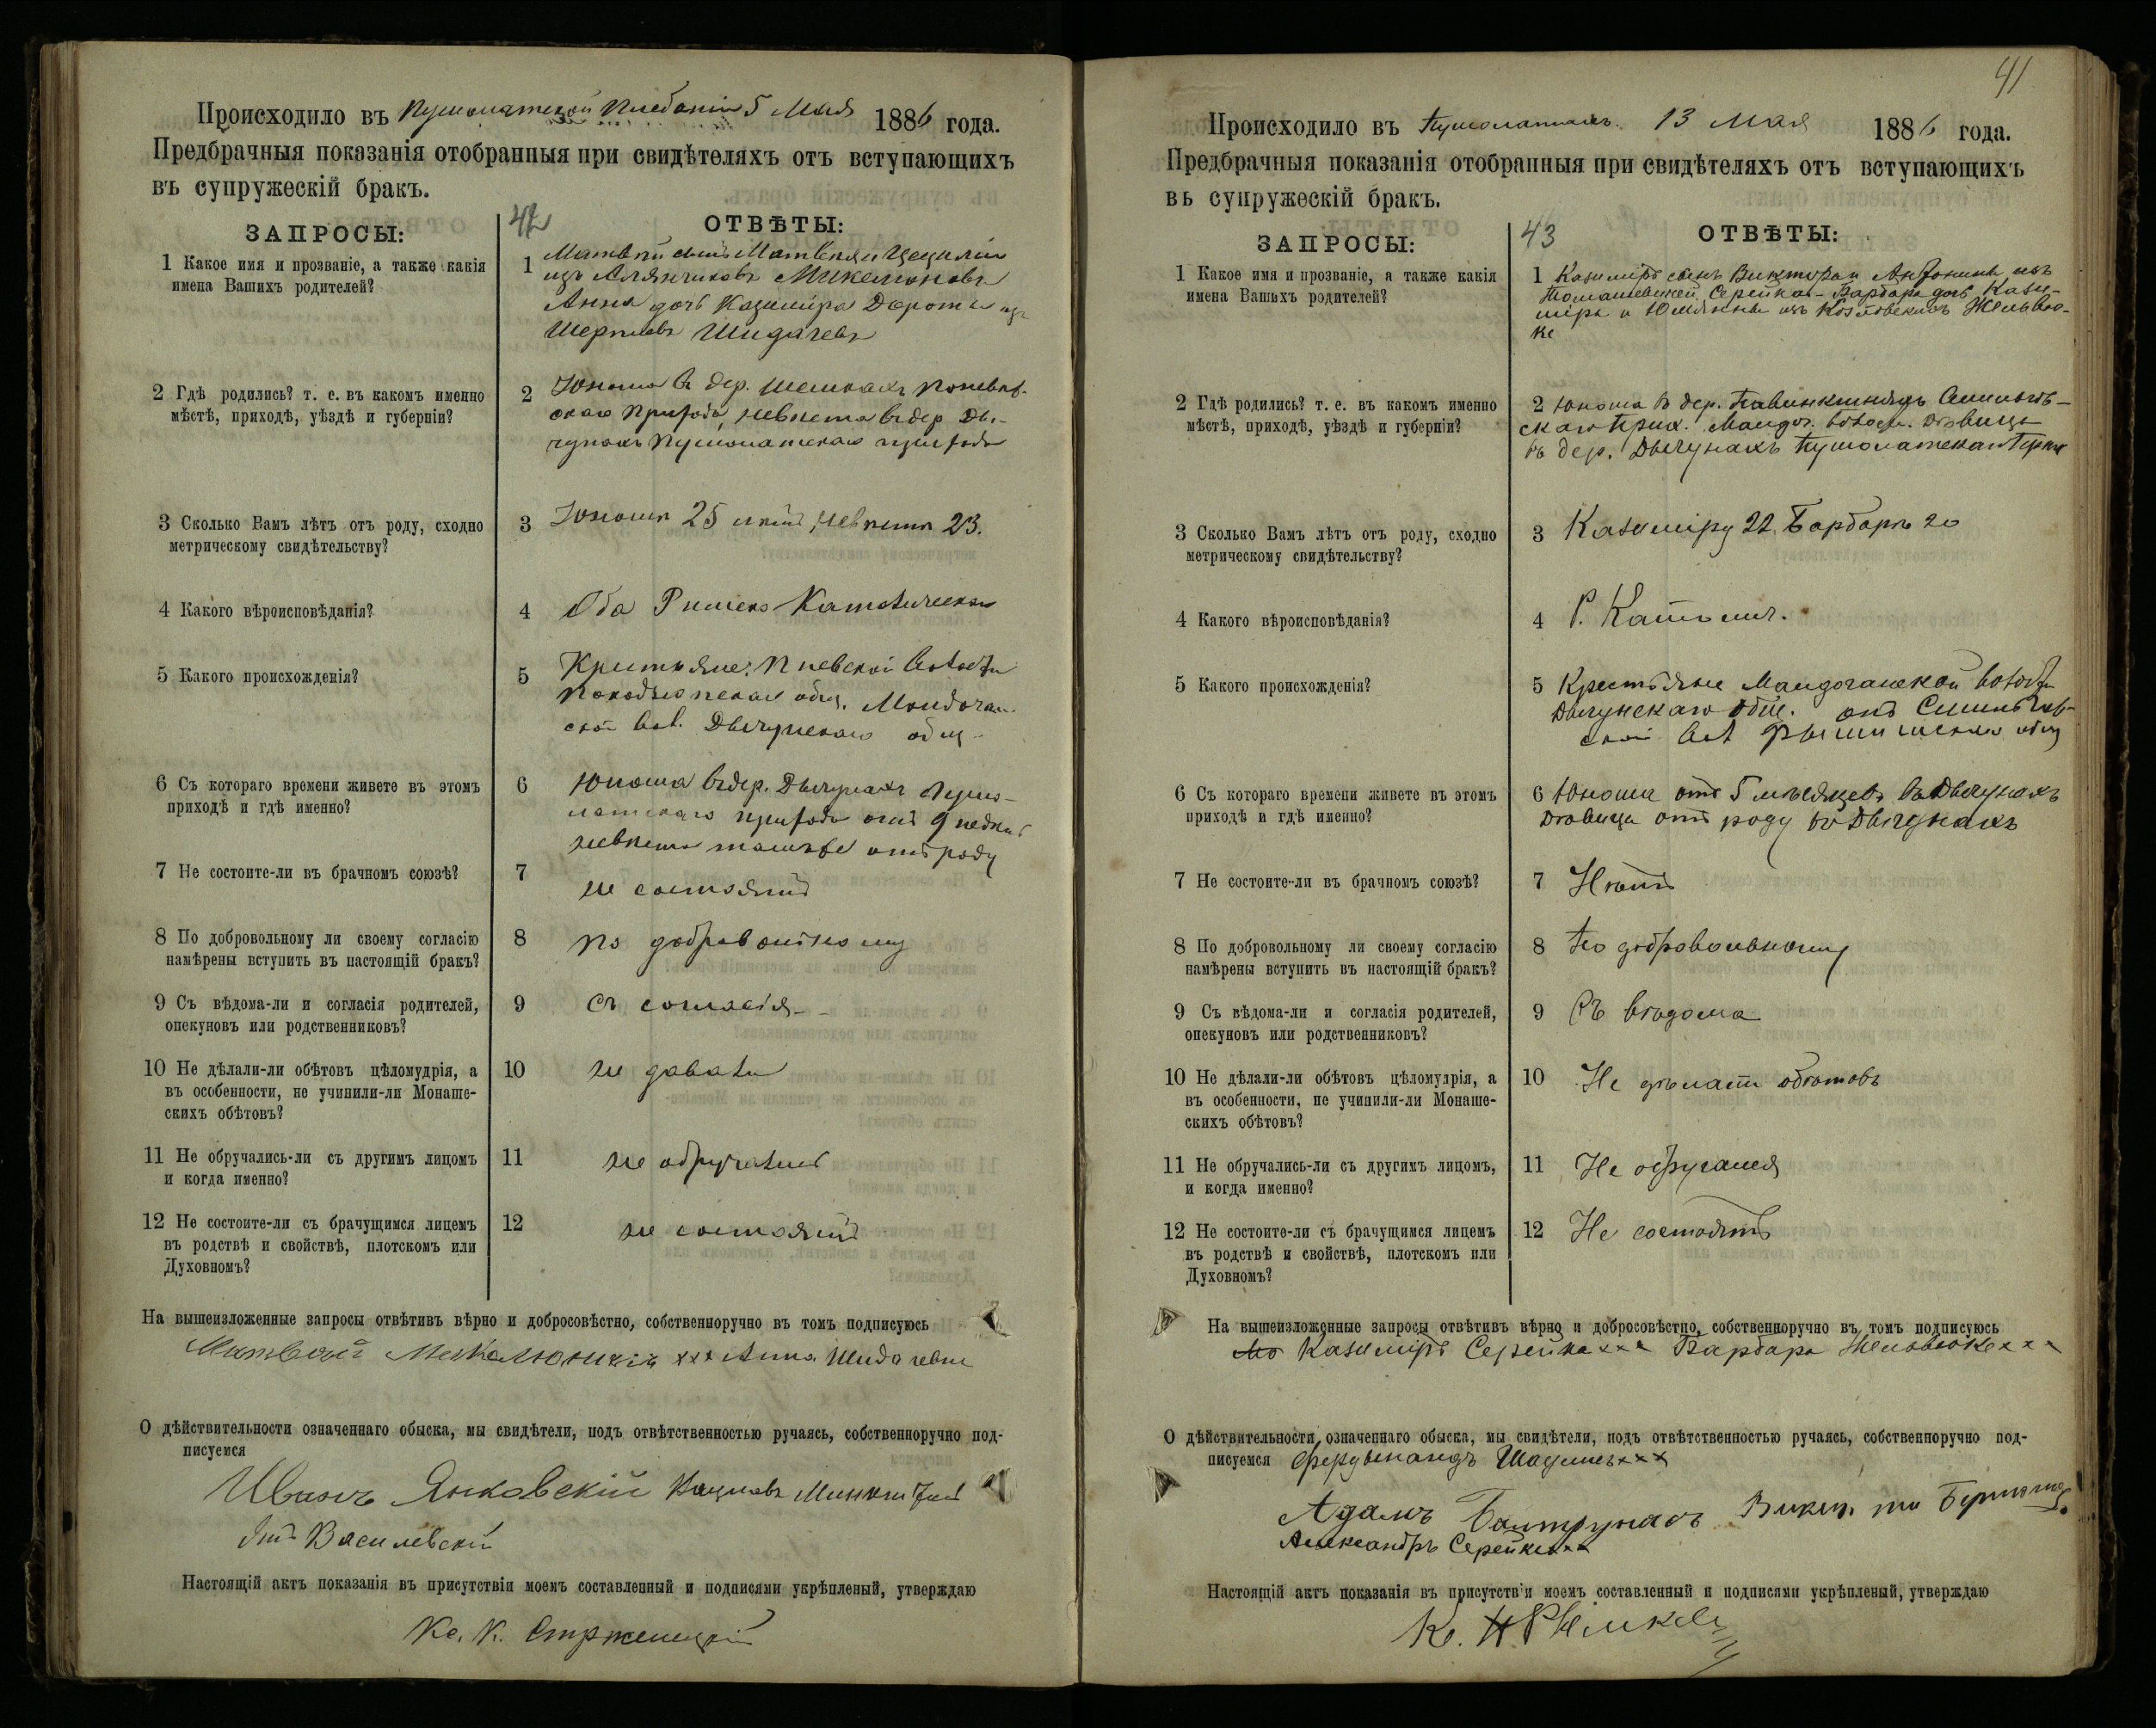 Происходило въ Пушолатской Плебаніи 5 Мая 1886 года.
Предбрачныя показанія отобранныя при свидѣтеляхъ отъ вступающихъ
въ супружескій бракъ.
ЗАПРОСЫ:
42
ОТВѢТЫ:
1 Какое имя и прозваніе, а также какія
имена Вашихъ родителей?
1 Матвѣй сынъ Матвѣя и Цециліи
изъ
Анна дочь Казиміра Дороты изъ
2 Гдѣ родились? т. е. въ какомъ именно
мѣстѣ, приходѣ, уѣздѣ и губерніи?
2 Юноша въ дер.
скаго Прихода, невѣста въ дер. Ды-
чунахъ Пушолатскаго прихода
3 Сколько Вамъ лѣтъ отъ роду, сходно
метрическому свидѣтельству?
3 Юноша 25 лѣтъ невѣста 23.
4 Какого вѣроисповѣданія?
4 Оба Римско Католическаго
5 Какого происхожденія?
5 волости
общ.
ской вол. Дычунскаго общ.
6 Съ котораго времени живете въ этомъ
приходѣ и гдѣ именно?
6 Юноша въ дер. Дычунахъ Пушо-
латскаго прихода отъ 9 недѣль
невѣста отъ роду
7 Не состоите-ли въ брачномъ союзѣ?
7 не состоятъ
8 По добровольному ли своему согласію
намѣрены вступить въ настоящій бракъ?
8 по добровольному
9 Съ вѣдома-ли и согласія родителей,
опекуновъ или родственниковъ?
9 съ согласія
10 Не дѣлали-ли обѣтовъ цѣломудрія, а
въ особенности, не учинили-ли Монаше-
скихъ обѣтовъ?
10 не давали
11 Не обручались-ли съ другимъ лицомъ
и когда именно?
11 не обручались
12 Не состоите-ли съ брачущимся лицемъ
въ родствѣ и свойствѣ, плотскомъ или
Духовномъ?
12 не состоятъ
На вышеизложенные запросы отвѣтивъ вѣрно и добросовѣстно, собственноручно въ томъ подписуюсь
Матвѣй xxx Анна
О дѣйствительности означеннаго обыска, мы свидѣтели, подъ отвѣтственностью ручаясь, собственноручно под-
писуемся
Иванъ Янковскій
Василевскій
Настоящій актъ показанія въ присутствіи моемъ составленный и подписями укрѣпленый, утверждаю
Кс. К.
41
Происходило въ Пушолатахъ. 13 Мая 1886 года.
Предбрачныя показанія отобранныя при свидѣтеляхъ отъ вступающихъ
въ супружескій бракъ.
ЗАПРОСЫ:
43
ОТВѢТЫ:
1 Какое имя и прозваніе, а также какія
имена Вашихъ родителей?
1 Казиміръ сынъ Виктора и Антонины изъ
Серейко - Барбара дочь Кази-
міра и Юліянны изъ Козловскихъ
2 Гдѣ родились? т. е. въ какомъ именно
мѣстѣ, приходѣ, уѣздѣ и губерніи?
2 Юноша въ дер.
скаго прих. дѣвица
въ дер. Дычунахъ Пушолатскаго
3 Сколько Вамъ лѣтъ отъ роду, сходно
метрическому свидѣтельству?
3 Казиміру 22 Барбарѣ 20
4 Какого вѣроисповѣданія?
4 Р. Католич.
5 Какого происхожденія?
5 Крестьяне волости
Дычунскаго общ. онъ
ской вол общ
6 Съ котораго времени живете въ этомъ
приходѣ и гдѣ именно?
6 Юноша отъ 5 мѣсяцевъ въ Дычунахъ
Дѣвица отъ роду въ Дычунахъ
7 Не состоите-ли въ брачномъ союзѣ?
7 Нѣтъ
8 По добровольному ли своему согласію
намѣрены вступить въ настоящій бракъ?
8 По добровольному
9 Съ вѣдома-ли и согласія родителей,
опекуновъ или родственниковъ?
9 Съ вѣдома
10 Не дѣлали-ли обѣтовъ цѣломудрія, а
въ особенности, не учинили-ли Монаше-
скихъ обѣтовъ?
10 Не дѣлали обѣтовъ
11 Не обручались-ли съ другимъ лицомъ,
и когда именно?
11 Не обручался
12 Не состоите-ли съ брачущимся лицемъ
въ родствѣ и свойствѣ, плотскомъ или
Духовномъ?
12 Не состоятъ
На вышеизложенные запросы отвѣтивъ вѣрно и добросовѣстно, собственноручно въ томъ подписуюсь
Казиміръ Серейко xxx Барбара xxx
О дѣйствительности означеннаго обыска, мы свидѣтели, подъ отвѣтственностью ручаясь, собственноручно под-
писуемся Фердынандъ xxx
Адамъ
Александръ Серейко xx
Настоящій актъ показанія въ присутствіи моемъ составленный и подписями укрѣпленый, утверждаю